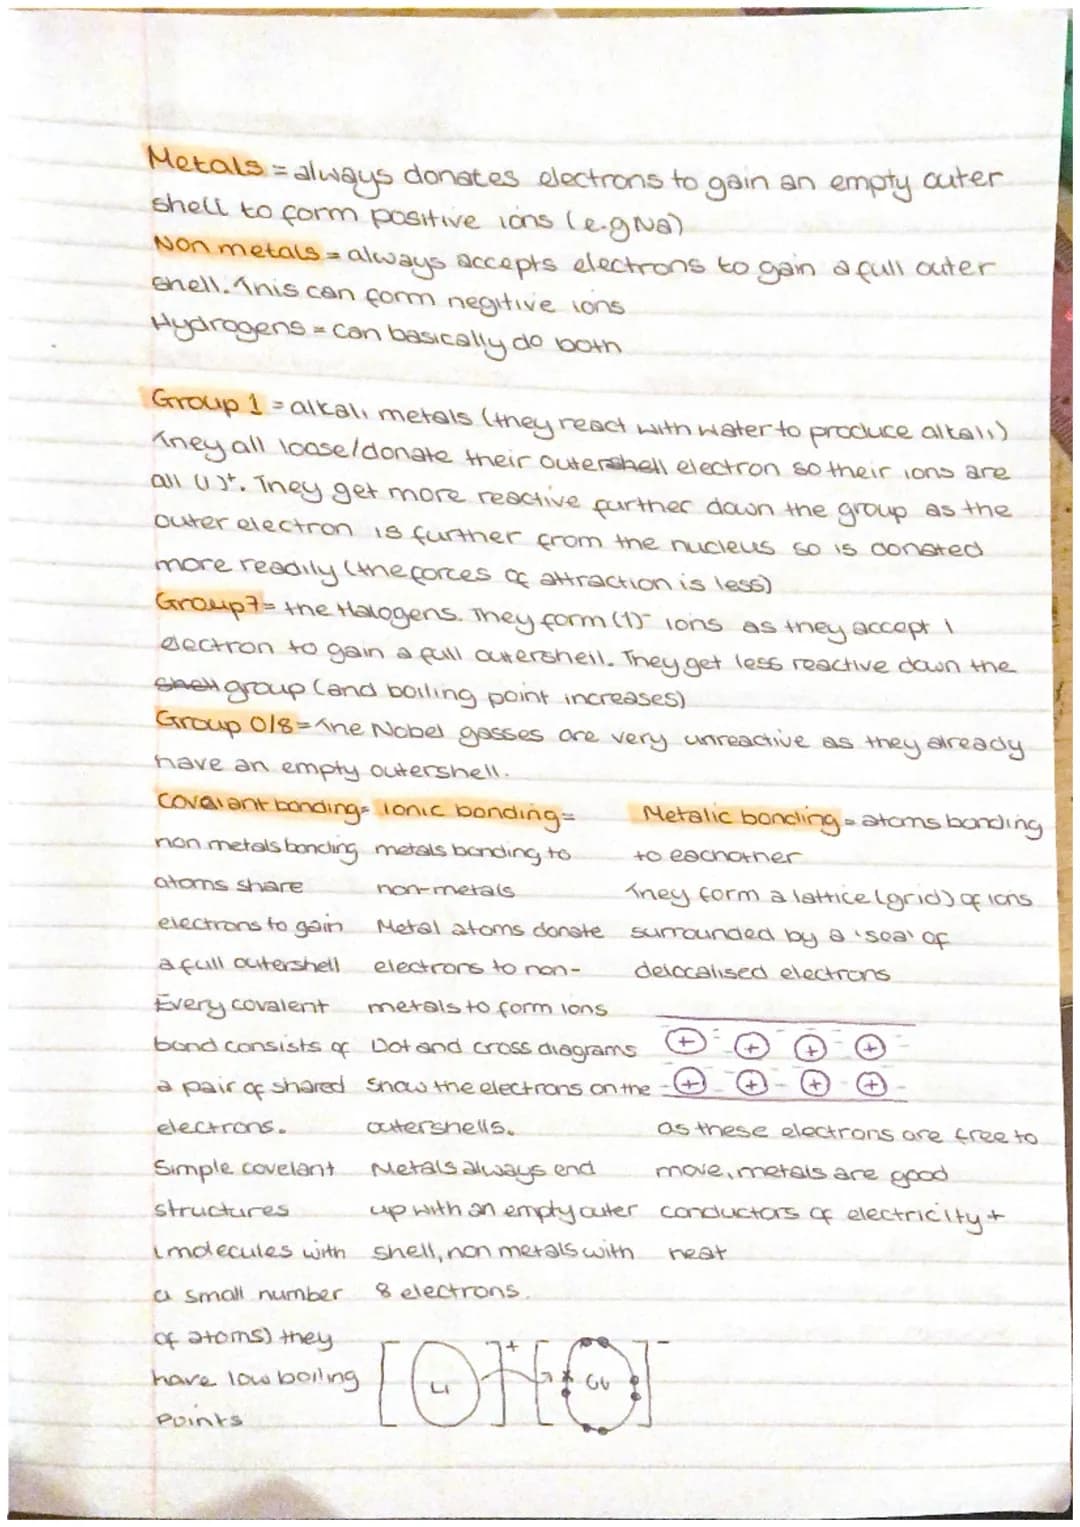 Metals = always donates electrons to gain an empty outer
shell to form positive ions (e.g Na)
Non metals = always accepts electrons to gain a full outer
shell. This can form negitive ions
Hydrogens = can basically do both
Group 1 = alkali metals (they react with water to produce alkali)
They all loose/donate their outershell electron so their ions are
all (1)+. They get more reactive further down the group as the
outer electron is further from the nucleus so is donated
more readily (the forces of attraction is less)
Group 7 = the Halogens. They form (1)- ions as they accept 1
electron to gain a full outershell. They get less reactive down the
shell group (and boiling point increases)
Group 0/8 = The Nobel gasses are very unreactive as they already
have an empty outershell.
Covalant bonding=
non metals bonding
atoms share
electrons to gain
a full outershell
Every covalent
bond consists of
a pair of shared
electrons.
Simple covelant
structures
(molecules with
a small number
of atoms) they
have low boiling
points
Ionic bonding=
metals bonding to
non-metals
Metal atoms donate
electrons to non-
metals to form ions
Dot and cross diagrams
show the electrons on the
outershells.
Metals always end
up with an empty outer
shell, non metals with
8 electrons.
[Li]+ [ ]-
Metalic bonding = atoms bonding
to eachother
They form a lattice (grid) of ions
surrounded by a 'sea' of
delocalised electrons
+ + + +
+ + + +
as these electrons are free to
move, metals are good
conductors of electricity +
heat